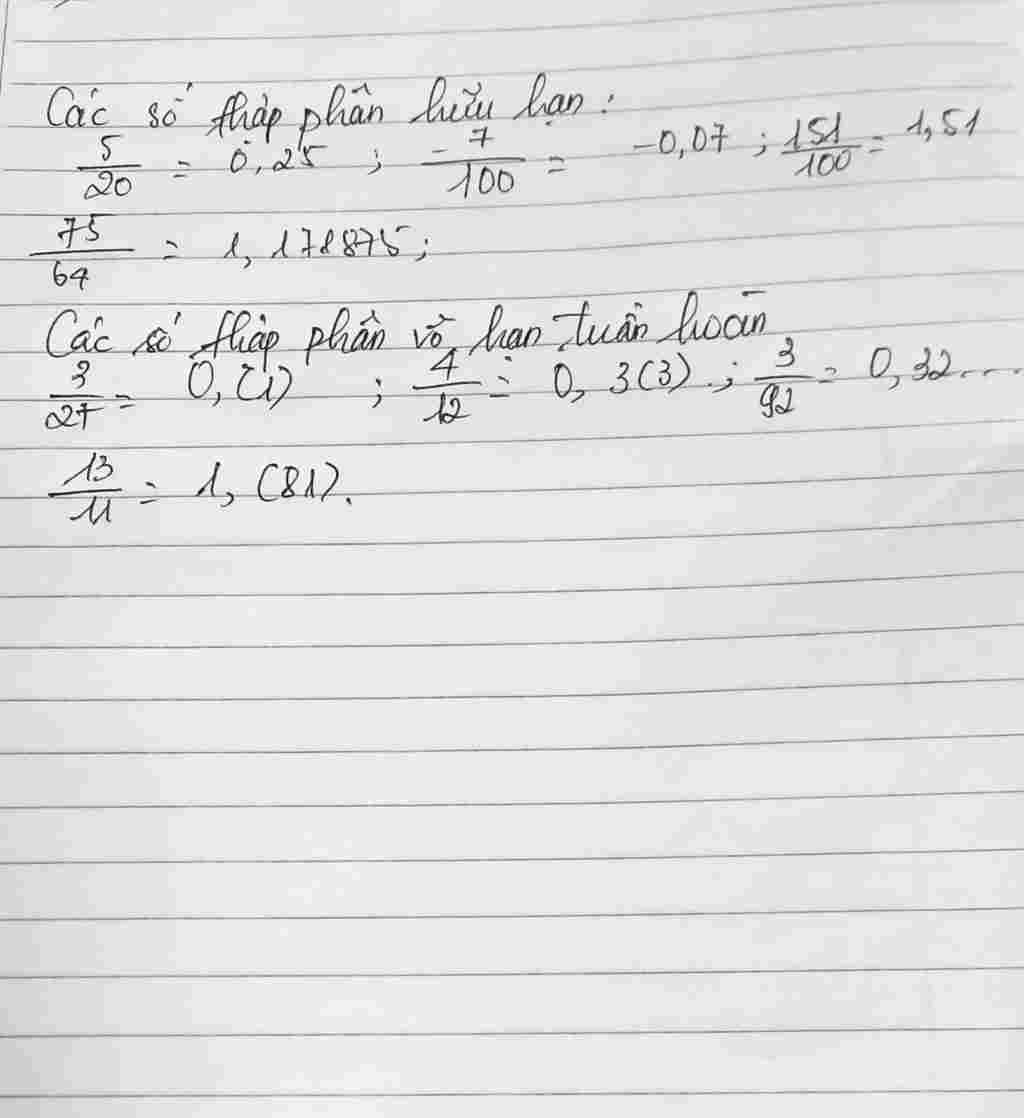 Các số thập phân hữu hạn:
5/20 = 0,25 ; -7/100 = -0,07 ; 151/100 = 1,51
75/64 = 1,178875;
Các số thập phân vô hạn tuần hoàn
3/27 = 0,(1) ; 4/12 = 0,3(3) ; 3/92 = 0,32....
13/11 = 1,(81).